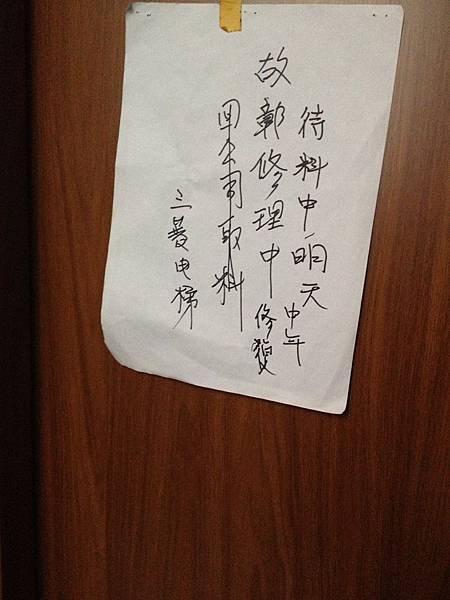 待料中,明天中年
故彰修理中修複
回公司取料
三菱电梯